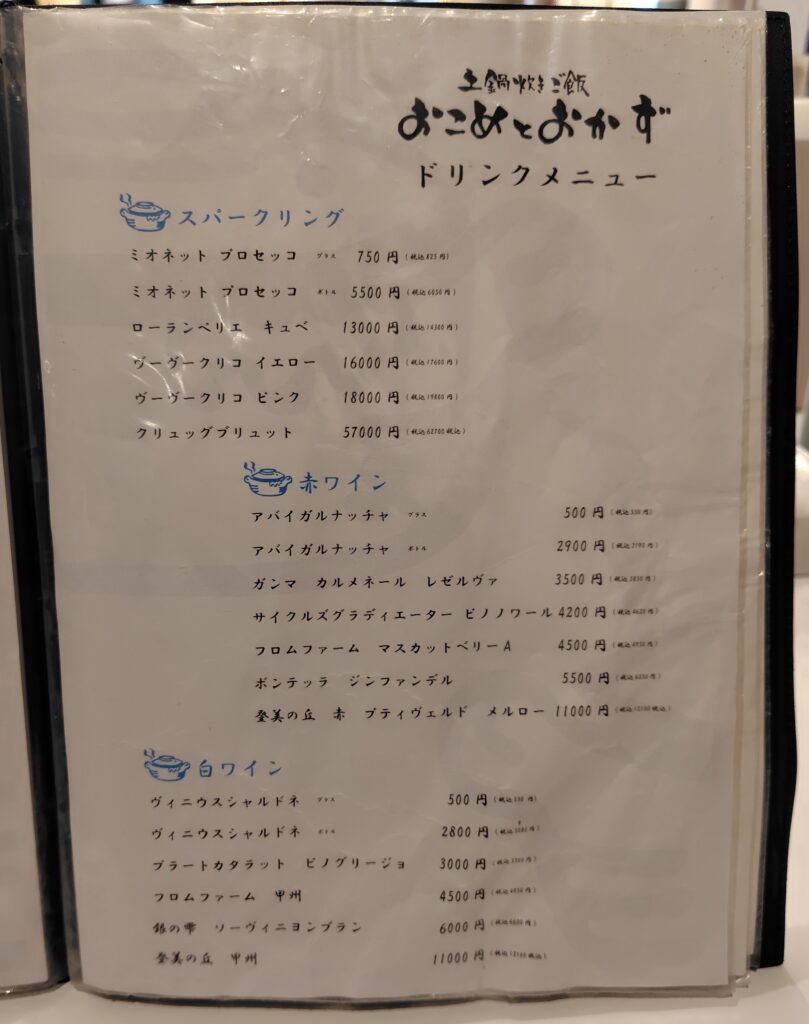 土鍋炊きご飯
おこめとおかず
ドリンクメニュー
スパークリング
ミオネット プロセッコ グラス 750円(税込825円)
ミオネット プロセッコ ボトル 5500円(税込6050円)
ローランペリエ キュベ 13000円(税込14300円)
ヴーヴークリコ イエロー 16000円(税込17600円)
ヴーヴークリコ ピンク 18000円(税込19800円)
クリュッグブリュット 57000円(税込62700税込)
赤ワイン
アバイガルナッチャ グラス 500円(税込550円)
アバイガルナッチャ ボトル 2900円(税込3190円)
ガンマ カルメネール レゼルヴァ 3500円(税込3850円)
サイクルズグラディエーター ピノノワール 4200円(税込4620円)
フロムファーム マスカットベリーA 4500円(税込4950円)
ボンテッラ ジンファンデル 5500円(税込6050円)
登美の丘 赤 プティヴェルド メルロー 11000円(税込12100税込)
白ワイン
ヴィニウスシャルドネ グラス 500円(税込550円)
ヴィニウスシャルドネ ボトル 2800円(税込3080円)
プラートカタラット ピノグリージョ 3000円(税込3300円)
フロムファーム 甲州 4500円(税込4950円)
銀の雫 ソーヴィニヨンブラン 6000円(税込6600円)
登美の丘 甲州 11000円(税込12100税込)